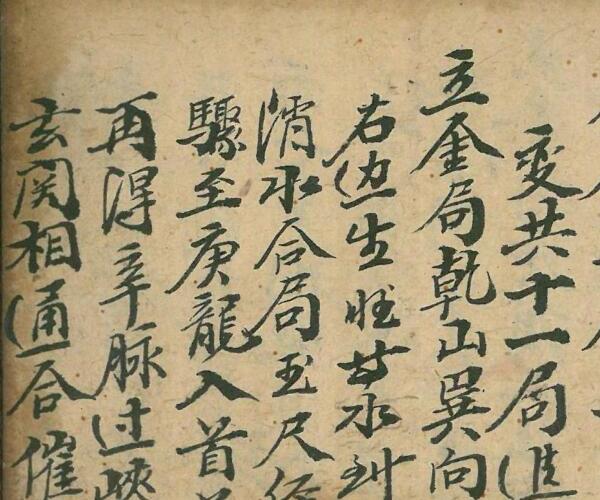 变共十一局進
立金局乾山巽向
右边生旺墓水到
消水合局玉尺
驟至庚龍入首
再淂辛脉过峽
玄関相通合催